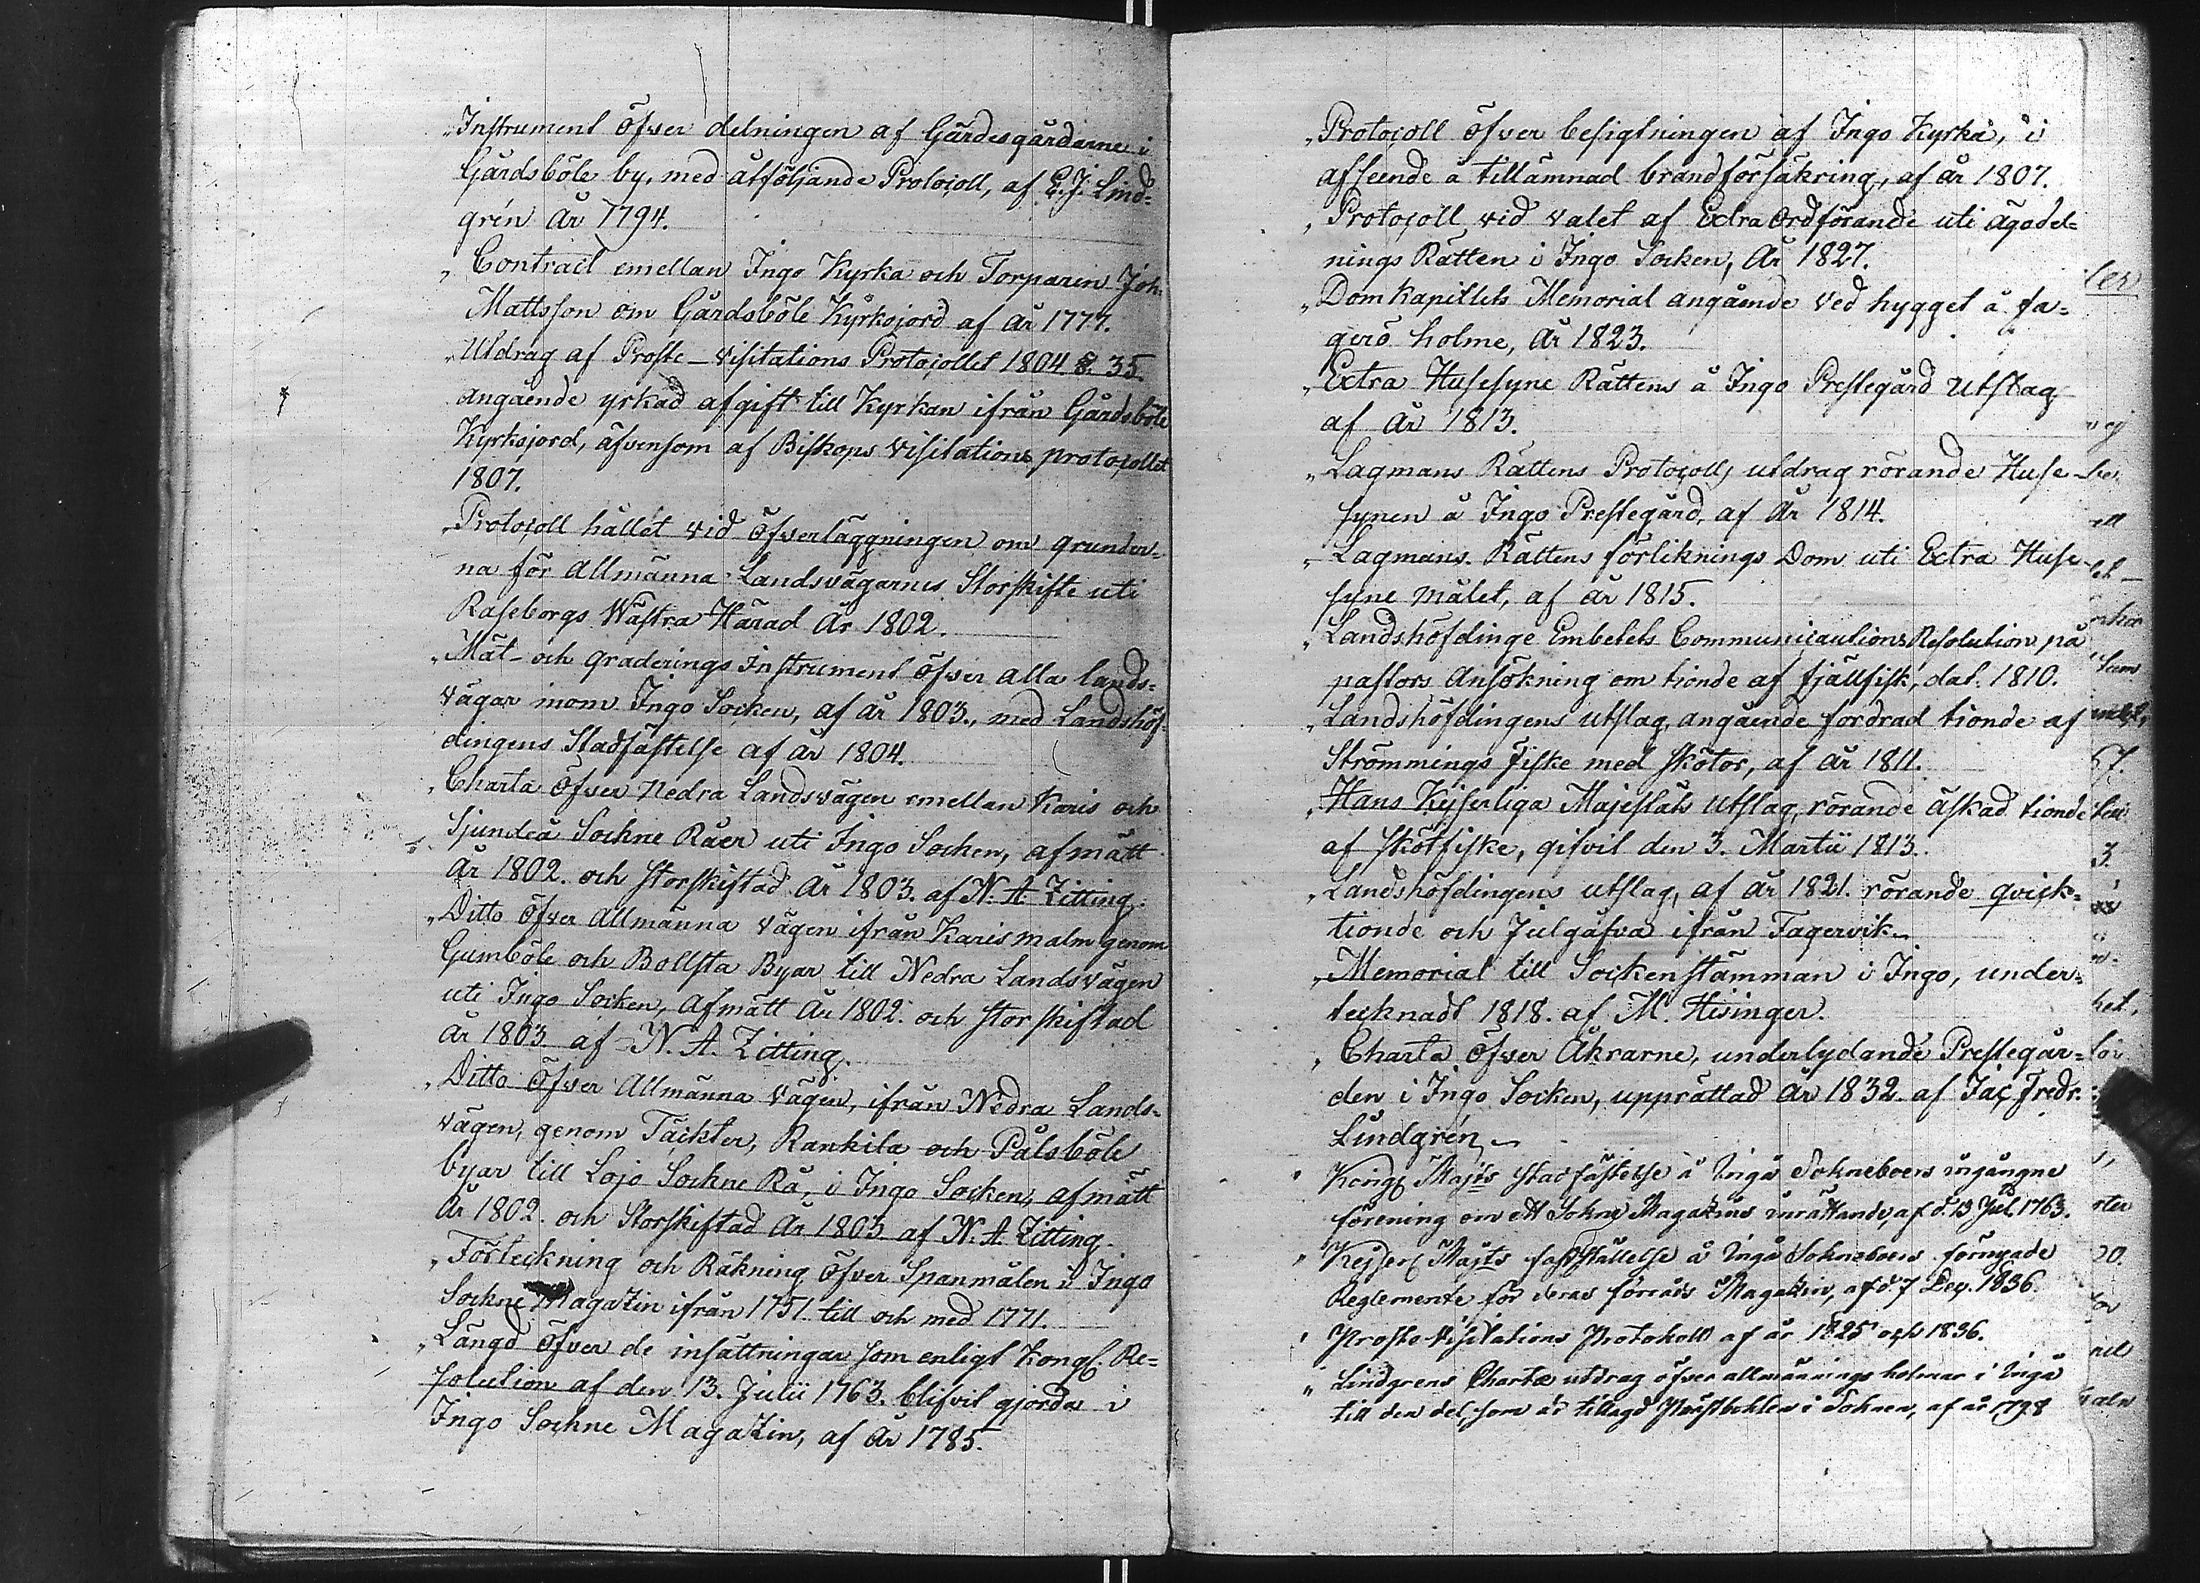 „Instrument öfver delningen af Gärdesgårdarne i
Gårdsböle by, med åtföljande Protocoll, af E. J. Lind-
grén År 1794.
„ Contract emellan Ingo Kyrka och Torparen Joh:
Mattsson om Gårdsböle Kyrkojord af år 1777.
„Utdrag af Proste-Visitations Protocollet 1804. §. 35.
angående yrkad afgift till Kyrkan ifrån Gårdsböle
Kyrkojord, äfvensom af Biskops visitations protocollet
1807.
„Protocoll hållet vid öfverläggningen om grunder-
na för Allmänna Landsvägarnes Storskifte uti
Raseborgs Wästra Härad År 1802.
„Mät- och graderings Instrument öfver alla lands-
vägar inom Ingo Socken, af år 1803., med Landshöf-
dingens Stadfästelse af år 1804.
„Charta öfver Nedra Landsvägen emellan Karis och
Sjundeå Sockne Råer uti Ingo Socken, afmätt
År 1802. och storskiftad År 1803. af N. A. Zitting.
„Ditto öfver Allmänna vägen ifrån Karis malm genom
Gumböle och Bollsta Byar till Nedra Landsvägen
uti Ingo Socken, Afmätt År 1802. och storskiftad
År 1803 af N. A. Zitting.
„Ditto öfver Allmänna vägen, ifrån Nedra Lands-
vägen, genom Täckter, Rankila och Pålsböle
byar till Lojo Sockne Rå, i Ingo Socken, afmätt
År 1802. och Storskiftad År 1803 af N. A. Zitting.
„Förteckning och Räkning öfver Spanmålen i Ingo
Sockne Magazin ifrån 1751. till och med 1771.
„Längd öfver de insättningar som enligt Kongl. Re-
solution af den 13. Julii 1763. blifvit gjorda i
Ingo Sockne Magazin, af År 1785.
„Protocoll öfver besigtningen af Ingo Kyrka, i
afseende å tillämnad brandförsäkring, af år 1807.
„Protocoll vid valet af Extra Ordförande uti Ägodel-
nings Rätten i Ingo Socken, År 1827.
„Dom Kapitlets Memorial angående Ved hygget å Fa-
gerö holme, År 1823.
„Extra Husesyne Rättens å Ingo Prestegård Utslag
af År 1813.
„Lagmans Rättens Protocolls utdrag rörande Huse-
synen å Ingo Prestegård, af År 1814.
„Lagmans Rättens förliknings Dom uti Extra Huse
syne målet, af år 1815.
„Landshöfdinge Embetets Communications Resolution på
pastors Ansökning om tionde af fjällfisk, dat: 1810.
„Landshöfdingens utslag, angående fordrad tionde af
Strömmings Fiske med Skötor, af År 1811.
„Hans Kejserliga Majestäts Utslag, rörande äskad tionde
af Skötfiske, gifvit den 3. Martii 1813.
„Landshöfdingens utslag, af år 1821. rörande qvick-
tionde och Julgåfva ifrån Fagervik.
„Memorial till Sockenstämman i Ingo, under-
tecknadt 1818. af M. Hisinger.
„Charta öfver Åkrarne, underlydande Prestegår-
den i Ingo Socken, upprättad År 1832 af Jac. Fredr.
Lindgrén
„ Kongl Majts stadfästelse å Ingå Sokneboers ingångne
förening om ett Sokne Magazins inrättande, af d. 13 Jul. 1763.
„ Kejserl Majts fastställelse å Ingå Sokneboers förnyade
Reglemente för deras förråds Magazin, af d. 7 Dec. 1836.
„ Proste Visitations Protokoll af år 1825 och 1836.
„ Lindgrens Charte utdrag öfver allmännings holmar i Ingå
till den del, som är tillagd i Soknen, af år 1798